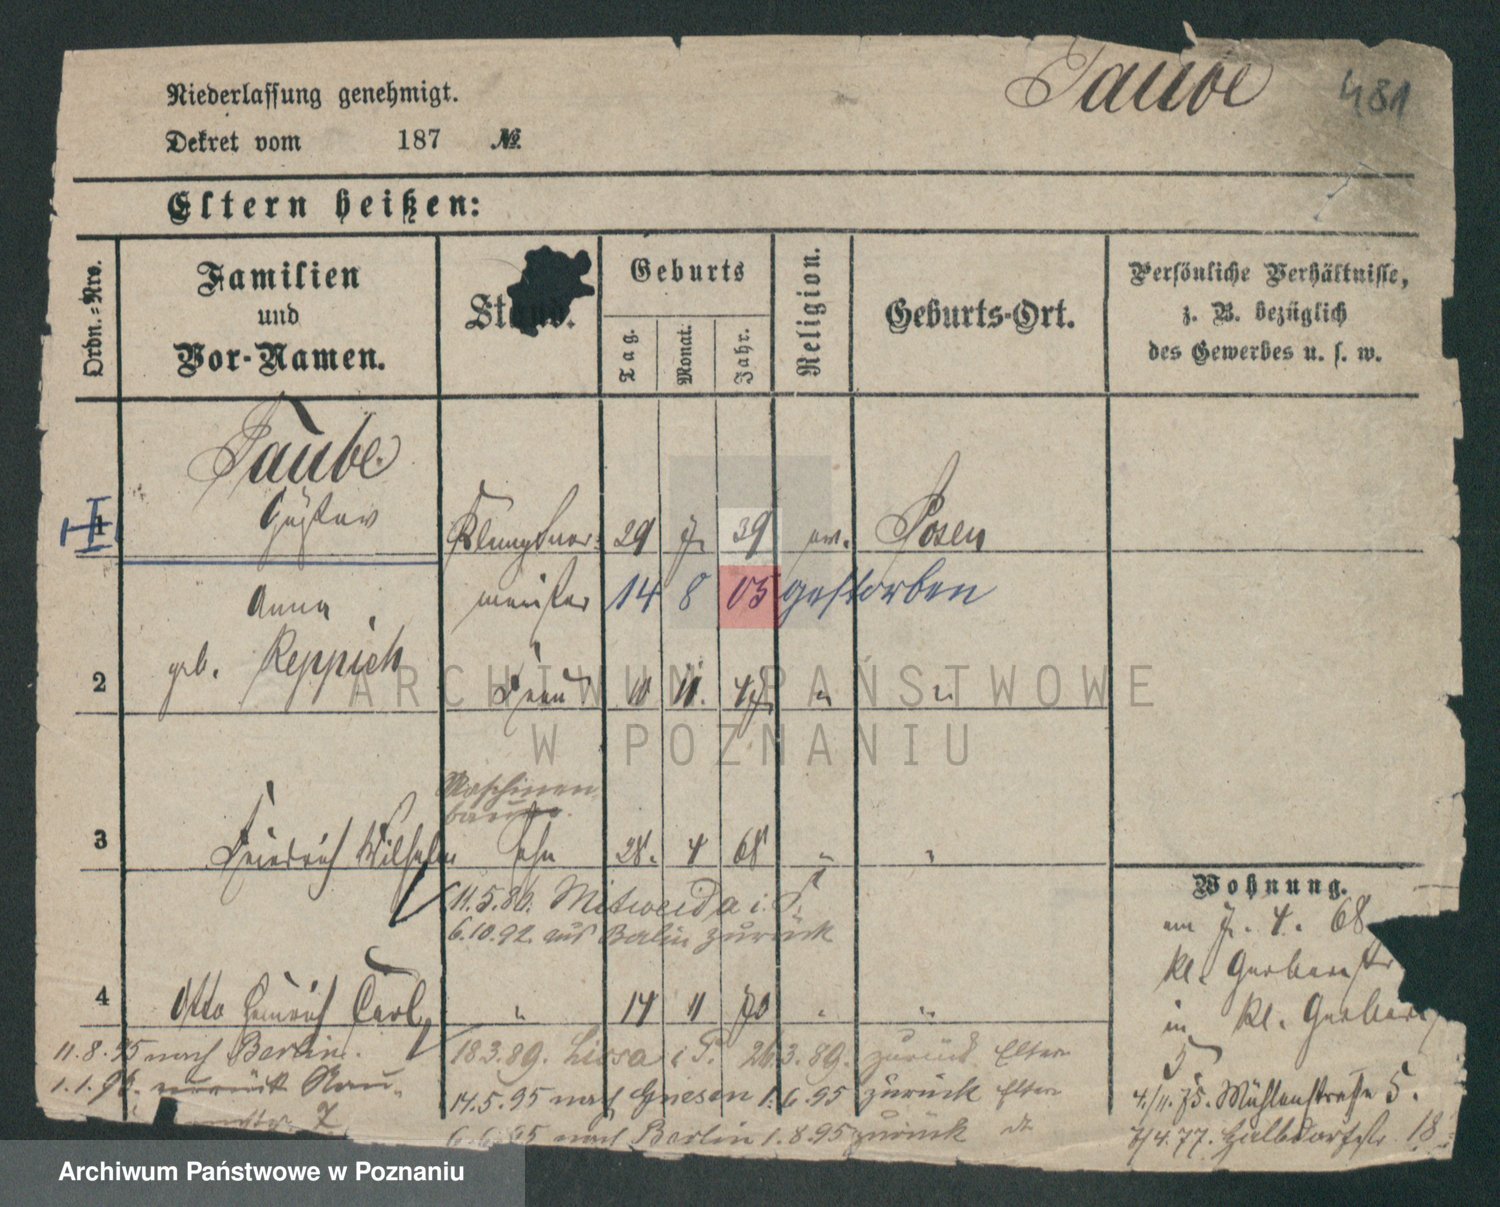 Taube 481
Niederlassung genehmigt.
Dekret vom 187 №
Eltern heißen:
Ordn.=Nro.
Familien
und
Vor-Namen.
Stand.
Geburts
Tag.
Monat.
Jahr.
Religion.
Geburts-Ort.
Persönliche Verhältnisse,
z. B. bezüglich
des Gewerbes u. s. w.
Taube
Gustav
1 Klempner- 29 7 39 ev. Posen
meister 14 8 05 gestorben
Anna
geb. Reppich
2 Frau 10 11. 47 " "
Maschinen-
bauer.
3 Friedrich Wilhelm Sohn 28. 4 68 " "
11.5.86. Mitweida i. S.
6.10.92. aus Berlin zurück
4 Otto Heinrich Carl " 14 11 70 " "
11.8.95 nach Berlin.
18.3.89. Lissa i P. 26.3.89. zurück Eltern
14.5.95 nach Gnesen 1.6.95 zurück Eltern
6.6.95 nach Berlin 1.8.95 zurück
Wohnung.
am 7. 4. 68
kl. Gerberstr
in kl. Gerber
5
4/11.75. Mühlenstraße 5.
7/4.77. Halbdorfstr. 18
ARCHIWUM PAŃSTWOWE
W POZNANIU
Archiwum Państwowe w Poznaniu